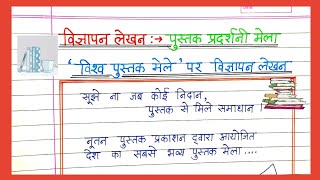 विज्ञापन लेखन :→ पुस्तक प्रदर्शनी मेला
‘ विश्व पुस्तक मेले ’ पर विज्ञापन लेखन
सूझे ना जब कोई निदान,
पुस्तक से मिले समाधान ।
नूतन पुस्तक प्रकाशन द्वारा आयोजित
देश का सबसे भव्य पुस्तक मेला ....